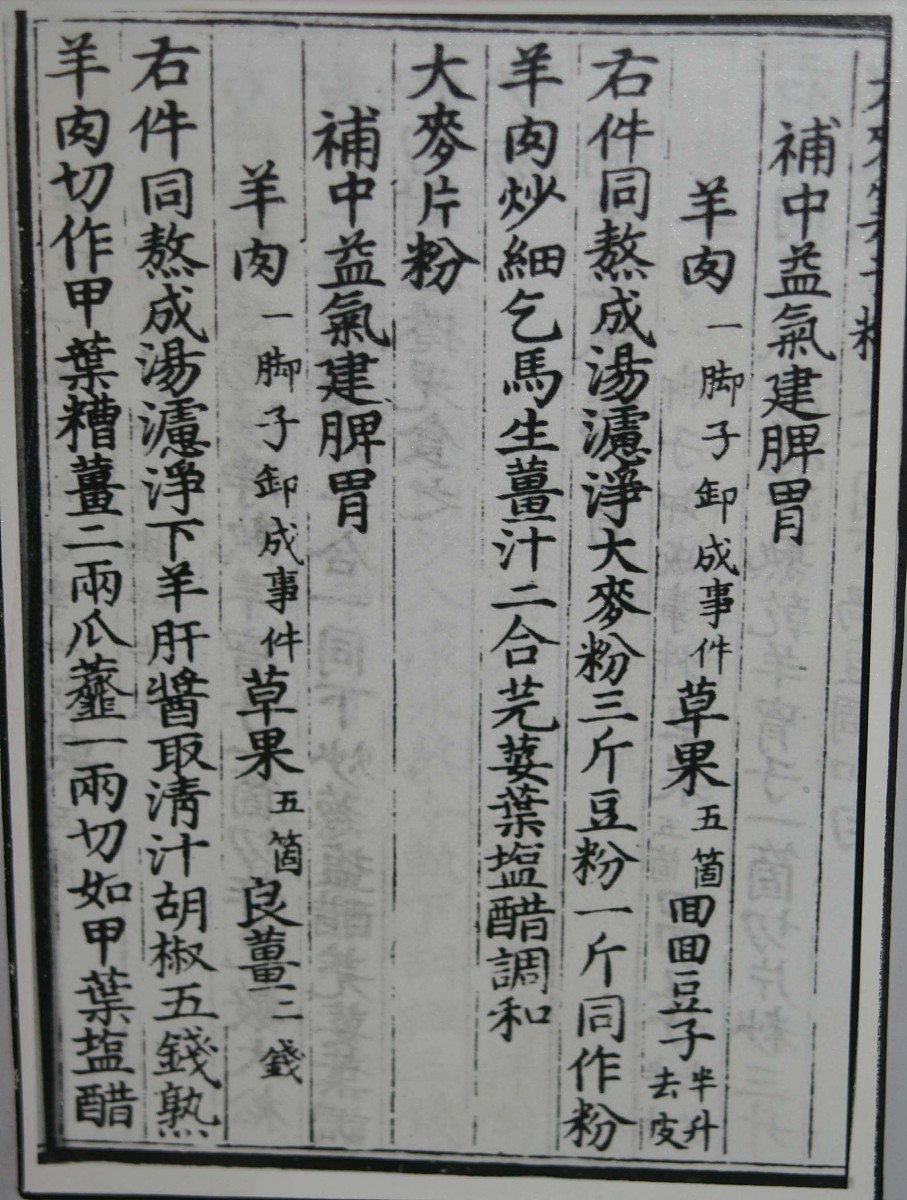 大麥筭子粉
補中益氣建脾胃
羊肉一脚子卸成事件草果五箇囬囬豆子半升去皮
右件同熬成湯濾淨大麥粉三斤豆粉一斤同作粉
羊肉炒細乞馬生薑汁二合芫荽葉塩醋調和
大麥片粉
補中益氣建脾胃
羊肉一脚子卸成事件草果五箇良薑二錢
右件同熬成湯濾淨下羊肝醬取清汁胡椒五錢熟
羊肉切作甲葉糟薑二兩瓜虀一兩切如甲葉塩醋